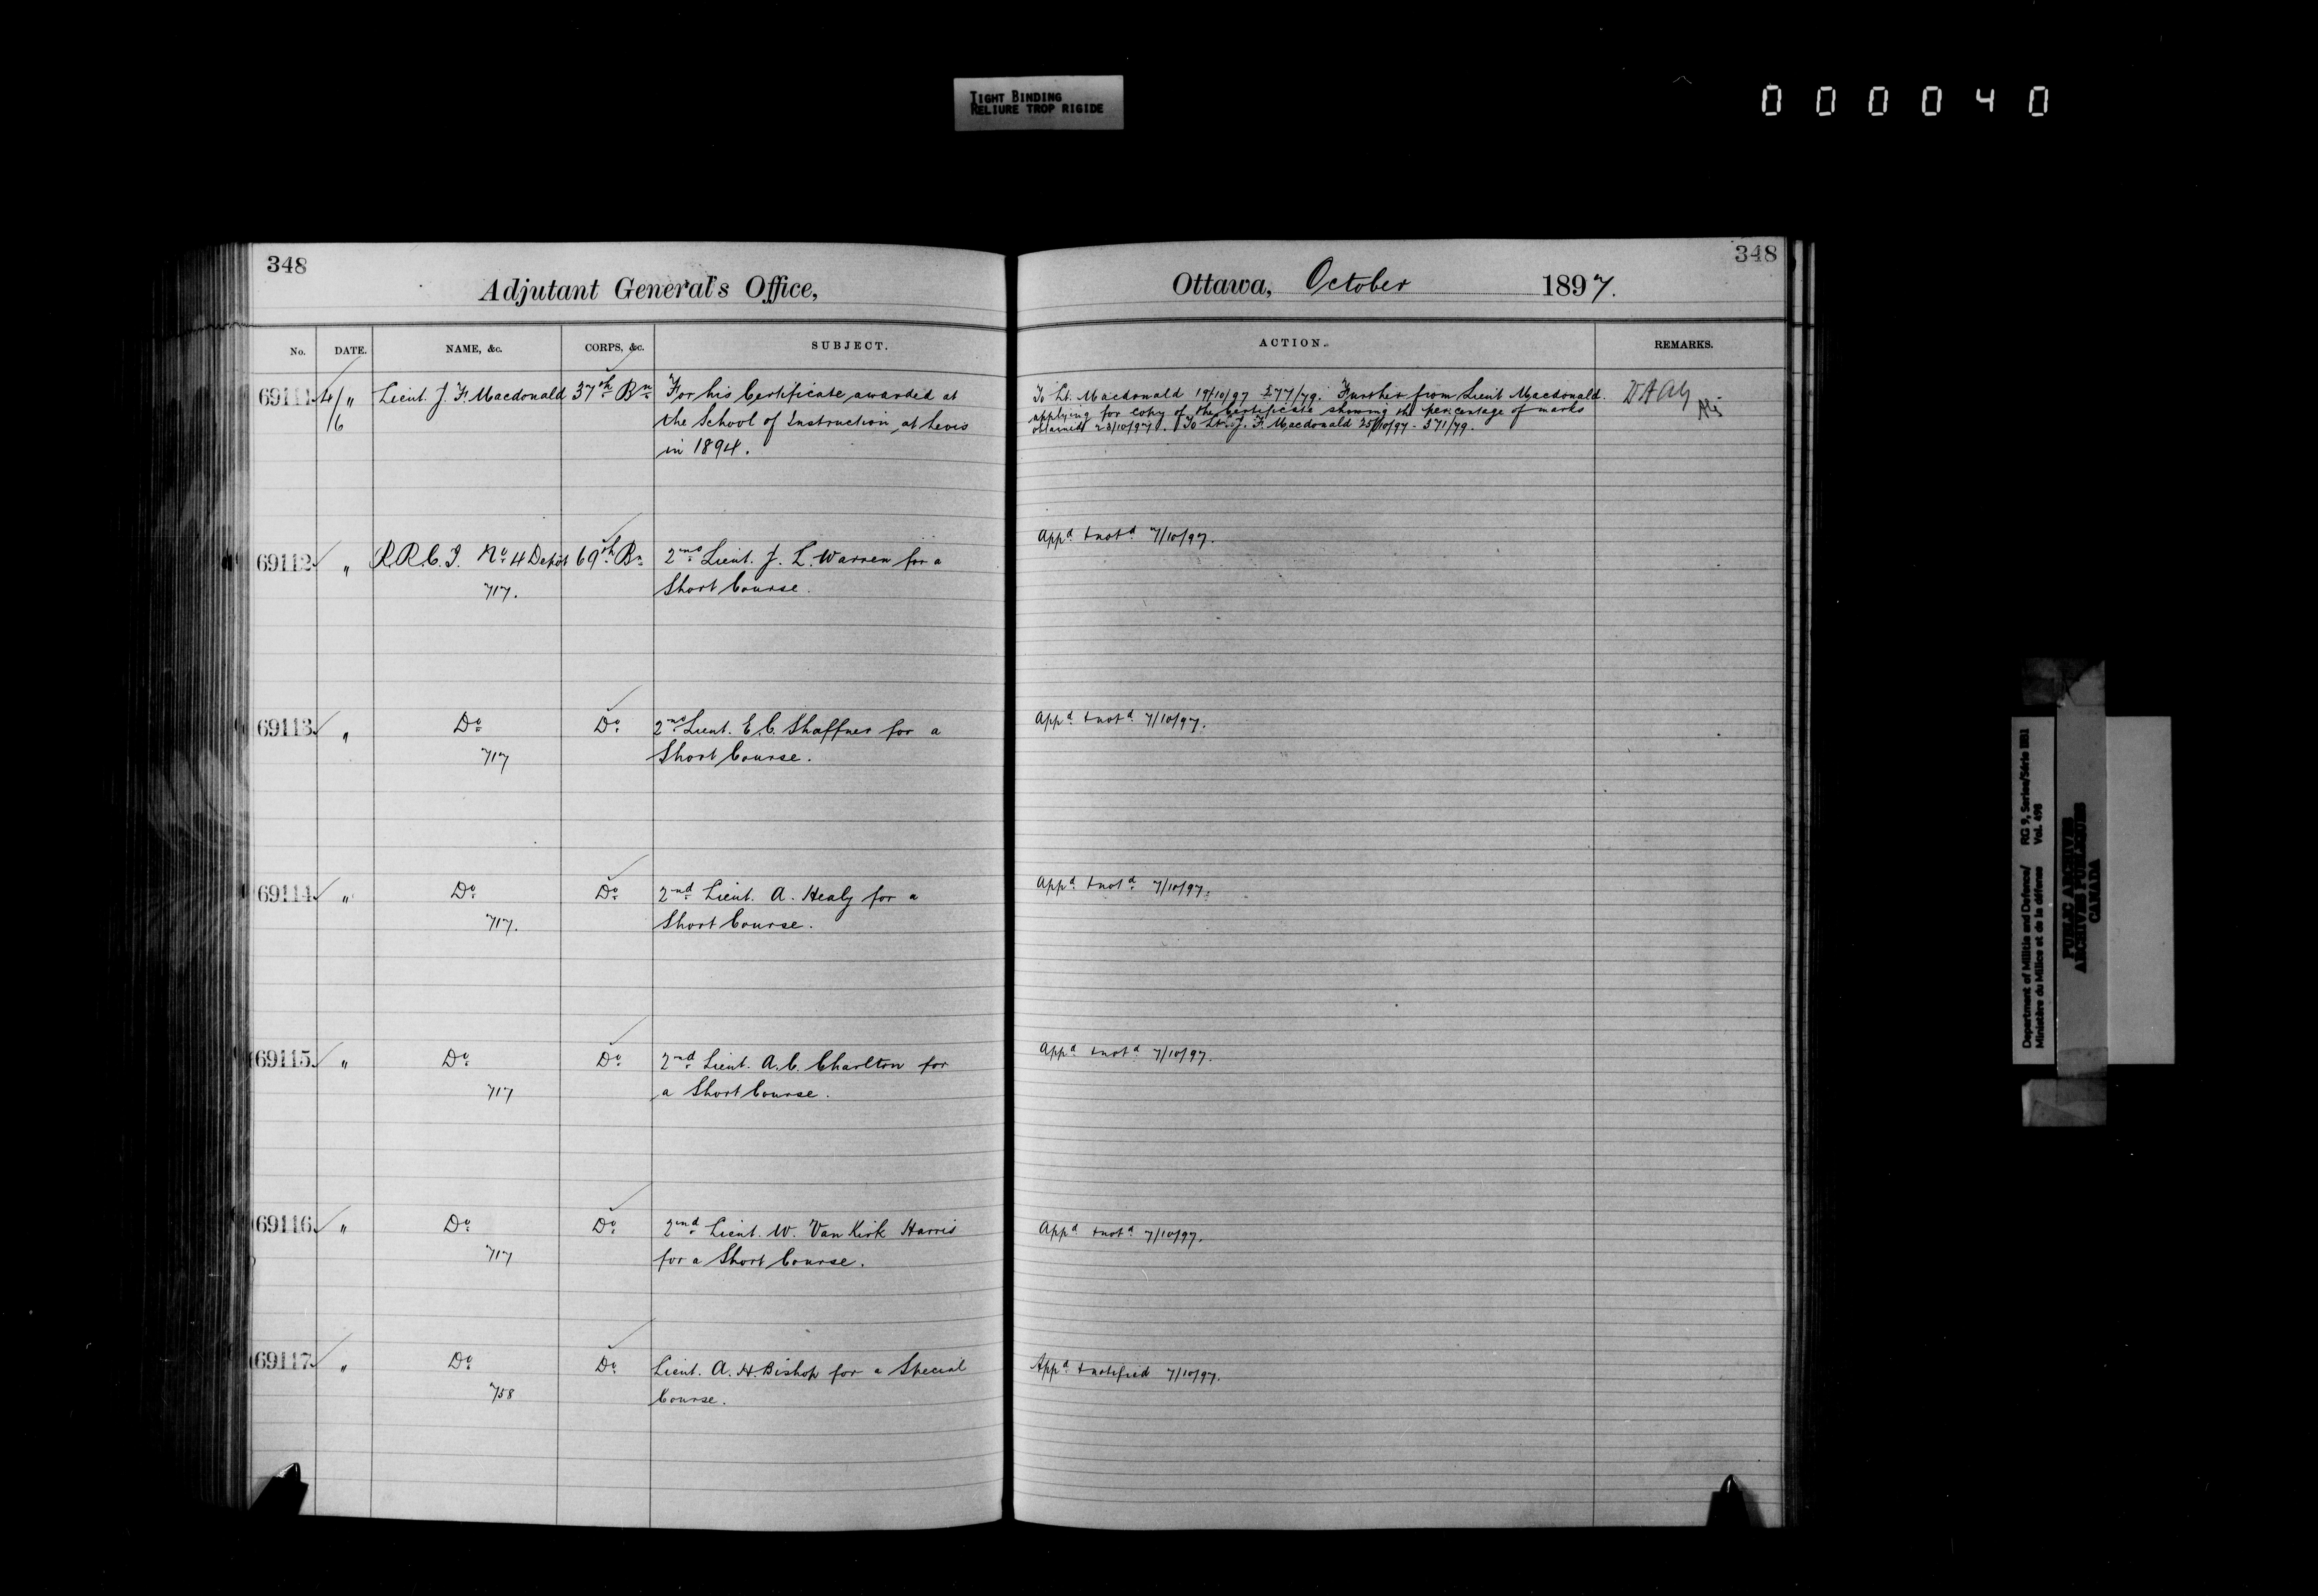 TIGHT BINDING
RELIURE TROP RIGIDE
000040
348
Adjutant General's Office,
No. DATE. NAME, &c. CORPS, &c. SUBJECT.
69111 4/6 " Lieut. J. F. Macdonald 37th Bn For his Certificate awarded at
the School of Instruction, at Levis
in 1894.
69112 " R.R.C.I. No 4 Depôt 69th Bn 2nd Lieut. J. L. Warren for a
717. Short Course.
69113 " Do Do 2nd Lieut. E. C. Shaffner for a
717 Short Course.
69114 " Do Do 2nd Lieut. A. Healy for a
717. Short Course.
69115 " Do Do 2nd Lieut. A. C. Charlton for
717 a Short Course.
69116 " Do Do 2nd Lieut. W. Van Kirk Harris
717 for a Short Course.
69117 " Do Do Lieut. A. H. Bishop for a Special
758 Course.
348
Ottawa, October 1897.
ACTION. REMARKS.
To Lt. Macdonald 19/10/97 577/79. Further from Lieut Macdonald.
applying for copy of the Certificate showing the percentage of marks
obtained 23/10/97. To Lt. J. F. Macdonald 25/10/97 - 571/79.
Appd & notd 7/10/97.
Appd & notd 7/10/97.
Appd & notd 7/10/97.
Appd & notd 7/10/97.
Appd & notd 7/10/97.
Appd & notified 7/10/97.
Department of Militia and Defence/ RG 9, Series/Série IIB1
Ministère du Milice et de la défense Vol. 498
PUBLIC ARCHIVES
ARCHIVES PUBLIQUES
CANADA